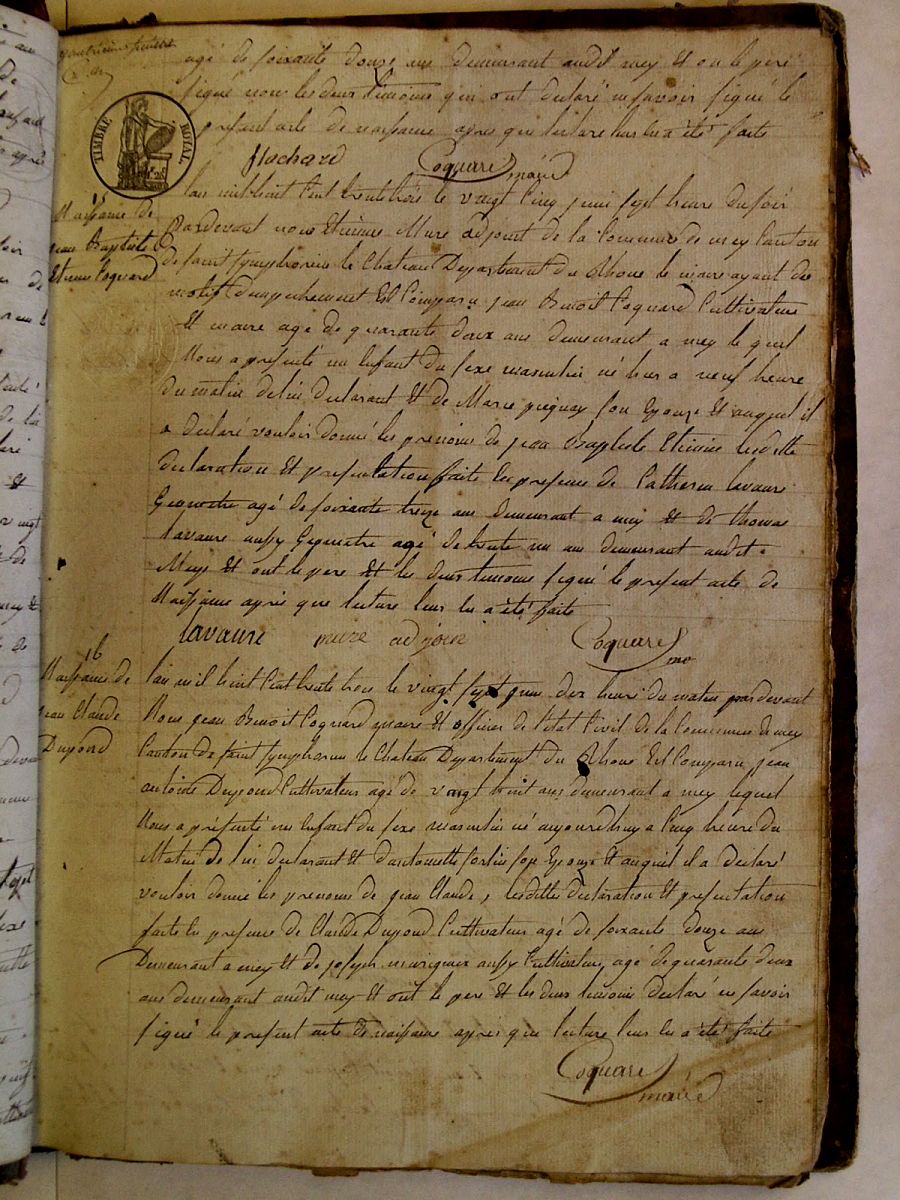 agé de soixante douze ans demeurant audit mey Et ou le pere
signé nous les deux temoins qui ont declaré ne savoir signé le
present acte de naissance apres que lecture leur lu a été faite
TIMBRE ROYAL
flachard Coquard maire
Naissance de
jean Baptiste
Etienne Coquard
lan mil huit Cent trente trois le vingt Cinq juin sept heure du soir
Pardevant nous Etienne Mure adjoint de la Commune de mey Canton
de saint symphorien le Chateau Departement du Rhone le maire ayant des
motif dempechement Est Comparu jean Benoit Coquard Cultivateur
Et maire agé de quarante deux ans demeurant a mey le quel
Nous a presenté un Enfant du sexe masculin né hier a neuf heure
du matin de lui declarant Et de Marie son Epouse Et auquel il
a declaré vouloir donné les prenoms de jean Baptiste Etienne lesditte
declaration Et presentation faite En presence de Catherin lavaure
Geometre agé de soixante treize ans demeurant a mey Et de thomas
lavaure aussy Geometre agé de trente un ans demeurant audit
Meys Et ont le pere Et les deux temoins signé le present acte de
Naissance apres que lecture leur lu a été faite
lavaure mure adjoint Coquard
16
Naissance de
jean Claude
Dupond
lan mil huit Cent trente trois le vingt sept juin dix heure du matin pardevant
Nous jean Benoit Coquard maire Et officier de letat Civil de la Commune de mey
Canton de saint symphorien le Chateau Departement du Rhone Est Comparu jean
antoine Dupond Cultivateur agé de vingt huit ans demeurant a mey lequel
Nous a présenté un Enfant du sexe masculin né aujourdhuy a Cinq heure du
Matin de lui declarant Et dantoinette son Epouse Et auquel il a declaré
vouloir donné les prenoms de jean Claude, lesdittes declaration Et presentation
faite En presence de Claude Dupond Cultivateur agé de soixante douze ans
Demeurant a mey Et de joseph aussy Cultivateur agé de quarante deux
ans demeurant audit mey Et ont le pere Et les deux temoins declaré ne savoir
signé le present acte de naissance apres que lecture leur lu a été faite
Coquard
maire